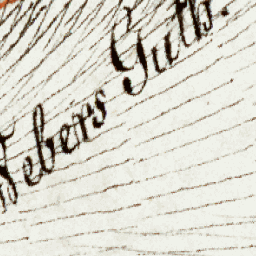 Webers Guth.